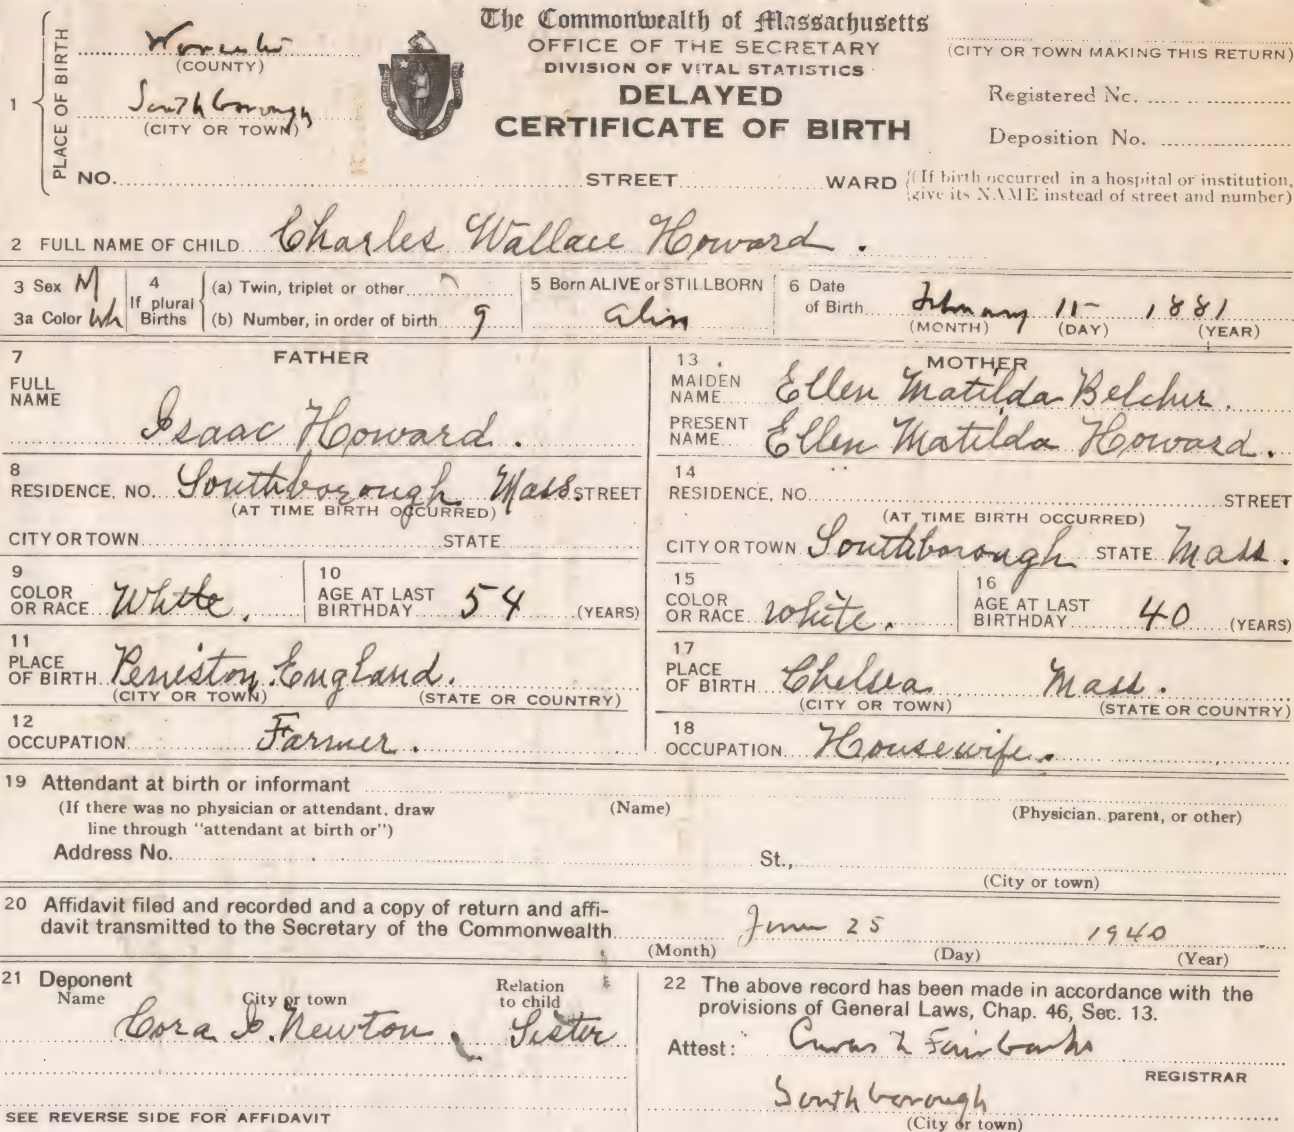 The Commonwealth of Massachusetts
OFFICE OF THE SECRETARY
DIVISION OF VITAL STATISTICS
DELAYED
CERTIFICATE OF BIRTH
(CITY OR TOWN MAKING THIS RETURN)
Registered No.
Deposition No.
1 PLACE OF BIRTH
Worcester
(COUNTY)
Southborough
(CITY OR TOWN)
NO. STREET WARD (If birth occurred in a hospital or institution, give its NAME instead of street and number)
2 FULL NAME OF CHILD Charles Wallace Howard.
3 Sex M
3a Color Wh
4 If plural Births
(a) Twin, triplet or other
(b) Number, in order of birth 9
5 Born ALIVE or STILLBORN
alive
6 Date of Birth February 11- 1881
(MONTH) (DAY) (YEAR)
7 FATHER
FULL NAME
Isaac Howard.
8
RESIDENCE, NO. Southborough Mass. STREET
(AT TIME BIRTH OCCURRED)
CITY OR TOWN STATE
9 COLOR OR RACE White.
10 AGE AT LAST BIRTHDAY 54 (YEARS)
11 PLACE OF BIRTH Peniston England.
(CITY OR TOWN) (STATE OR COUNTRY)
12 OCCUPATION Farmer.
13 MOTHER
MAIDEN NAME Ellen Matilda Belcher.
PRESENT NAME Ellen Matilda Howard.
14
RESIDENCE, NO. STREET
(AT TIME BIRTH OCCURRED)
CITY OR TOWN Southborough STATE Mass.
15 COLOR OR RACE White.
16 AGE AT LAST BIRTHDAY 40 (YEARS)
17 PLACE OF BIRTH Chelsea Mass.
(CITY OR TOWN) (STATE OR COUNTRY)
18 OCCUPATION Housewife.
19 Attendant at birth or informant
(If there was no physician or attendant, draw (Name) (Physician, parent, or other)
line through "attendant at birth or")
Address No. St.,
(City or town)
20 Affidavit filed and recorded and a copy of return and affi-
davit transmitted to the Secretary of the Commonwealth June 25 1940
(Month) (Day) (Year)
21 Deponent
Name City or town Relation to child
Cora Newton Sister
SEE REVERSE SIDE FOR AFFIDAVIT
22 The above record has been made in accordance with the
provisions of General Laws, Chap. 46, Sec. 13.
Attest: Fairbanks
REGISTRAR
Southborough
(City or town)